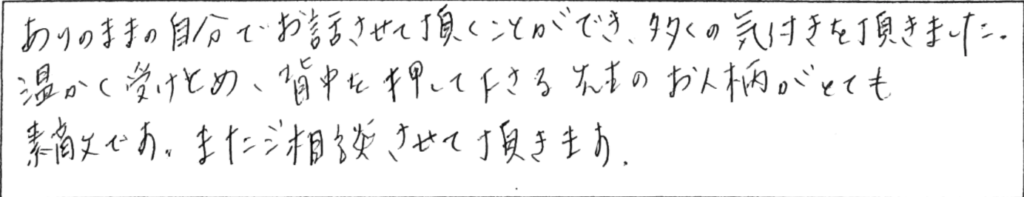 ありのままの自分でお話させて頂くことができ、多くの気付きを頂きました。
温かく受けとめ、背中を押して下さる先生のお人柄がとても
素敵です。またご相談させて頂きます。